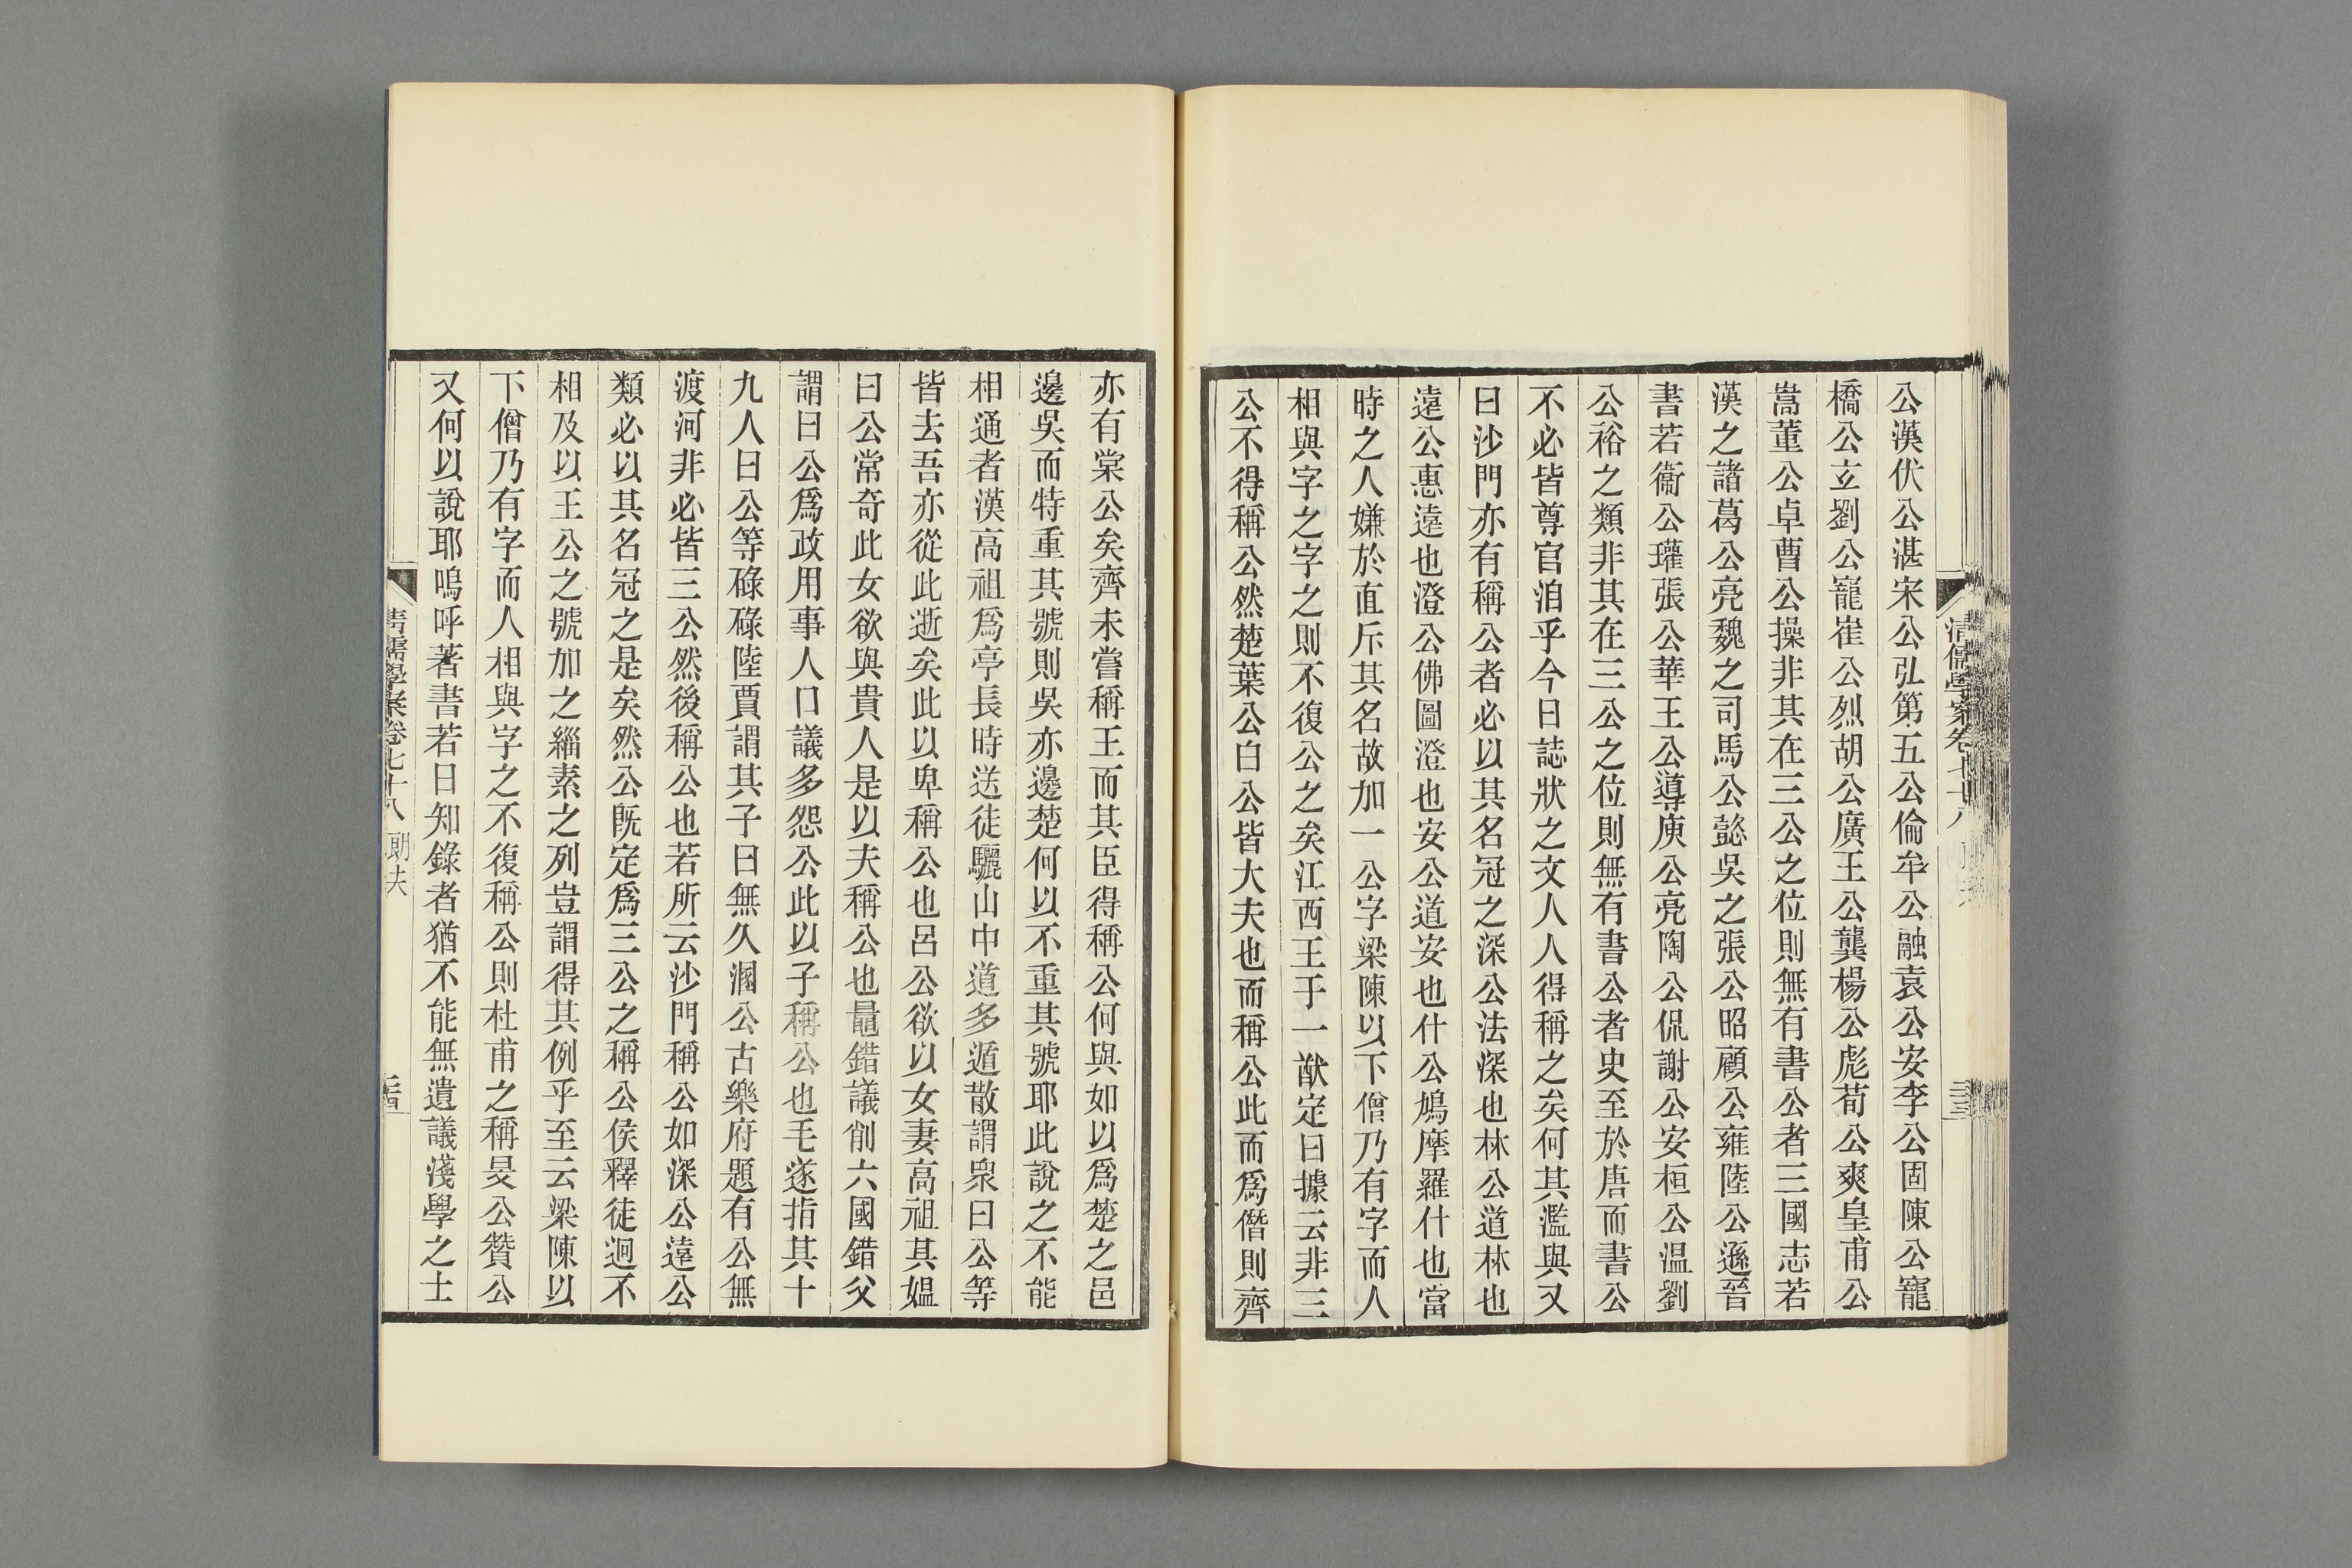 公漢伏公湛宋公弘第五公倫牟公融袁公安李公固陳公寵
橋公玄劉公寵崔公烈胡公廣王公龔楊公彪荀公爽皇甫公
嵩董公卓曹公操非其在三公之位則無有書公者三國志若
漢之諸葛公亮魏之司馬公懿吳之張公昭顧公雍陸公遜晉
書若衞公瓘張公華王公導庾公亮陶公侃謝公安桓公温劉
公裕之類非其在三公之位則無有書公者史至於唐而書公
不必皆尊官洎乎今日誌狀之文人人得稱之矣何其濫與又
曰沙門亦有稱公者必以其名冠之深公法深也林公道林也
遠公惠遠也澄公佛圖澄也安公道安也什公鳩摩羅什也當
時之人嫌於直斥其名故加一公字梁陳以下僧乃有字而人
相與字之字之則不復公之矣江西王于一猷定曰據云非三
公不得稱公然楚葉公白公皆大夫也而稱公此而爲僭則齊
清儒學案卷七十八
亦有棠公矣齊未嘗稱王而其臣得稱公何與如以爲楚之邑
邊吳而特重其號則吳亦邊楚何以不重其號耶此說之不能
相通者漢高祖爲亭長時送徒驪山中道多遁散謂衆曰公等
皆去吾亦從此逝矣此以卑稱公也呂公欲以女妻高祖其媼
曰公常奇此女欲與貴人是以夫稱公也鼂錯議削六國錯父
謂曰公爲政用事人口議多怨公此以子稱公也毛遂指其十
九人曰公等碌碌陸賈謂其子曰無久溷公古樂府題有公無
渡河非必皆三公然後稱公也若所云沙門稱公如深公遠公
類必以其名冠之是矣然公旣定爲三公之稱公侯釋徒迥不
相及以王公之號加之緇素之列豈謂得其例乎至云梁陳以
下僧乃有字而人相與字之不復稱公則杜甫之稱旻公贊公
又何以說耶嗚呼著書若日知錄者猶不能無遺議淺學之士
清儒學案卷七十八 朗夫